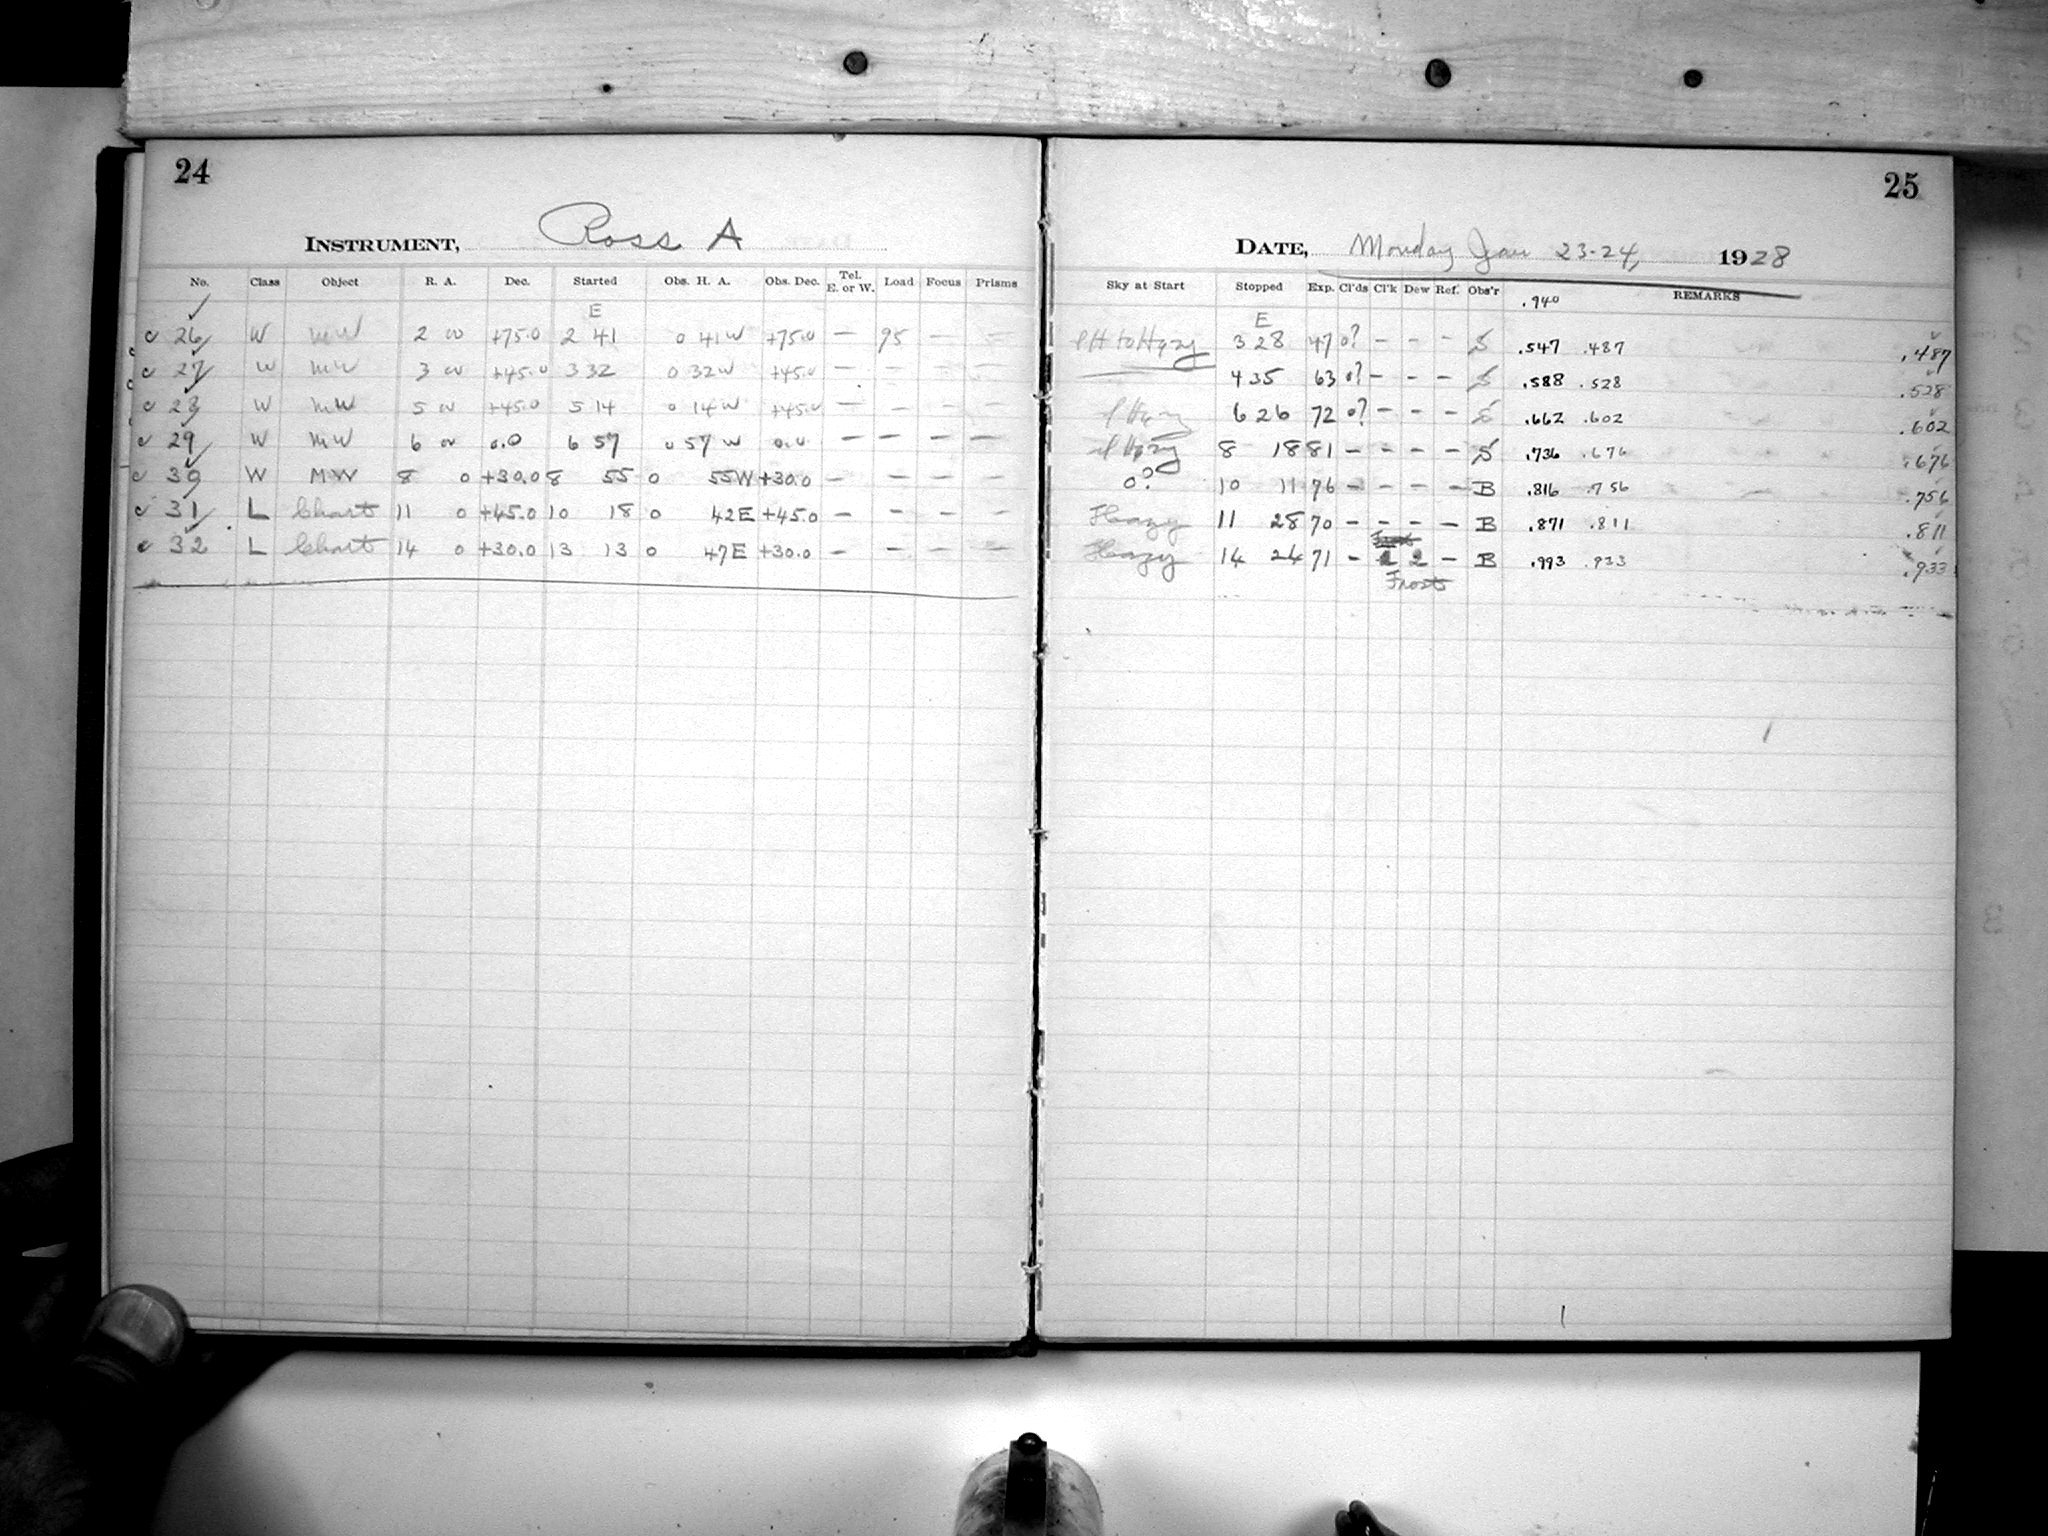 24
INSTRUMENT, Ross A
No. Class Object R. A. Dec. Started Obs. H. A. Obs. Dec. Tel. E. or W. Load Focus Prisms
E
26 W MW 2 0 +75.0 2 41 0 41 W +75.0 — 95 — —
27 W MW 3 0 +45.0 3 32 0 32 W +45.0 — — — —
28 W MW 5 0 +45.0 5 14 0 14 W +45.0 — — — —
29 W MW 6 0 0.0 6 57 0 57 W 0.0 — — — —
30 W MW 8 0 +30.0 8 55 0 55 W +30.0 — — — —
31 L Chart 11 0 +45.0 10 18 0 42 E +45.0 — — — —
32 L Chart 14 0 +30.0 13 13 0 47 E +30.0 — — — —
25
DATE, Monday Jan 23-24, 1928
Sky at Start Stopped Exp. Cl'ds Cl'k Dew Ref. Obs'r REMARKS
.940
E
to Hazy 3 28 47 0? — — — S .547 .487 .487
4 35 63 0? — — — S .588 .528 .528
Hazy 6 26 72 0? — — — S .662 .602 .602
Hazy 8 18 81 — — — — S .736 .676 .676
0? 10 11 76 — — — — B .816 .756 .756
Hazy 11 28 70 — — — — B .871 .811 .811
Hazy 14 24 71 — 2 — B .993 .933 .933
Frost